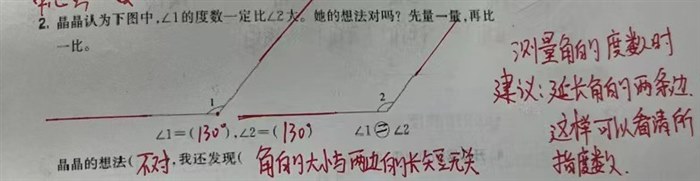 2. 晶晶认为下图中,∠1的度数一定比∠2大。她的想法对吗?先量一量,再比
一比。
1
2
∠1=(130°),∠2=(130°) ∠1=∠2
晶晶的想法(不对,我还发现(角的大小与两边的长短无关
测量角的度数时
建议:延长角的两条边.
这样可以看清所
指度数.